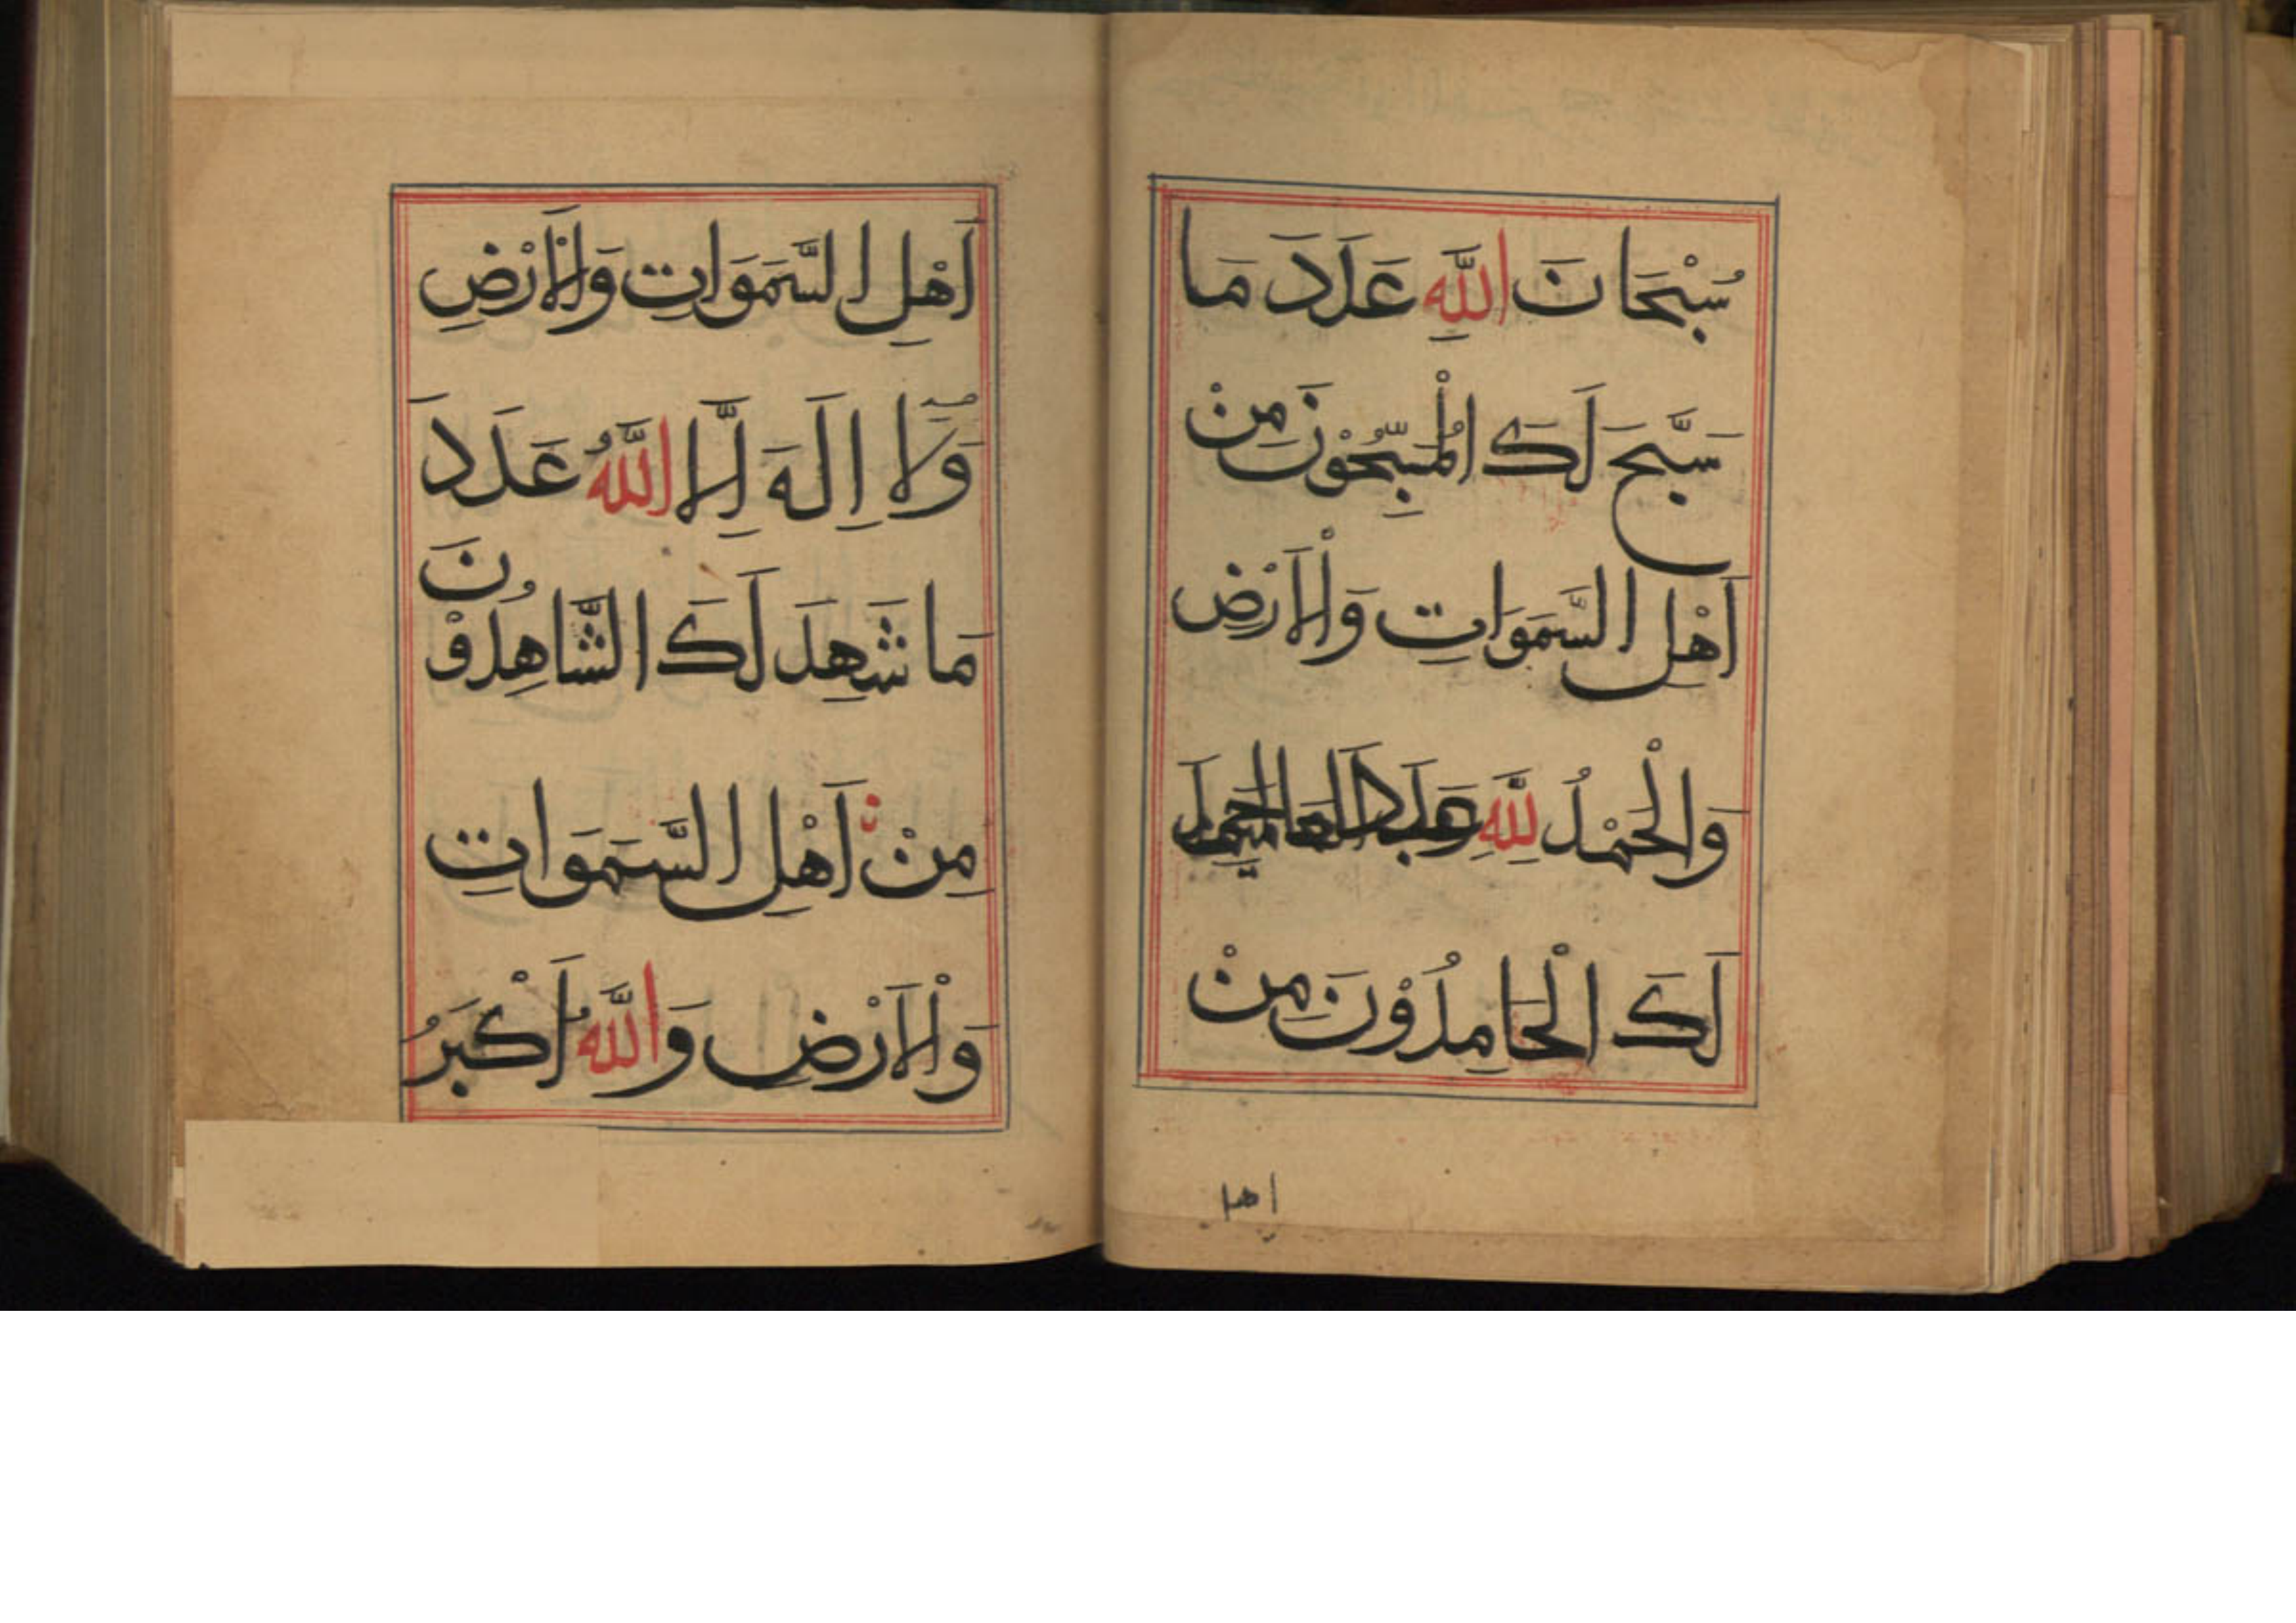 سُبْحَانَ اللَّهِ عَدَدَ مَا
سَبَّحَ لَكَ الْمُسَبِّحُوْنَ مِنْ
اَهْلِ السَّمَوَاتِ وَالْاَرْضِ
وَالْحَمْدُ لِلَّهِ عَدَدَ
لَكَ الْحَامِدُوْنَ مِنْ
اهل
اَهْلِ السَّمَوَاتِ وَالْاَرْضِ
وَلَا اِلَهَ اِلَّا اللَّهُ عَدَدَ
مَا شَهِدَ لَكَ الشَّاهِدُوْنَ
مِنْ اَهْلِ السَّمَوَاتِ
وَالْاَرْضِ وَاللَّهُ اَكْبَرُ